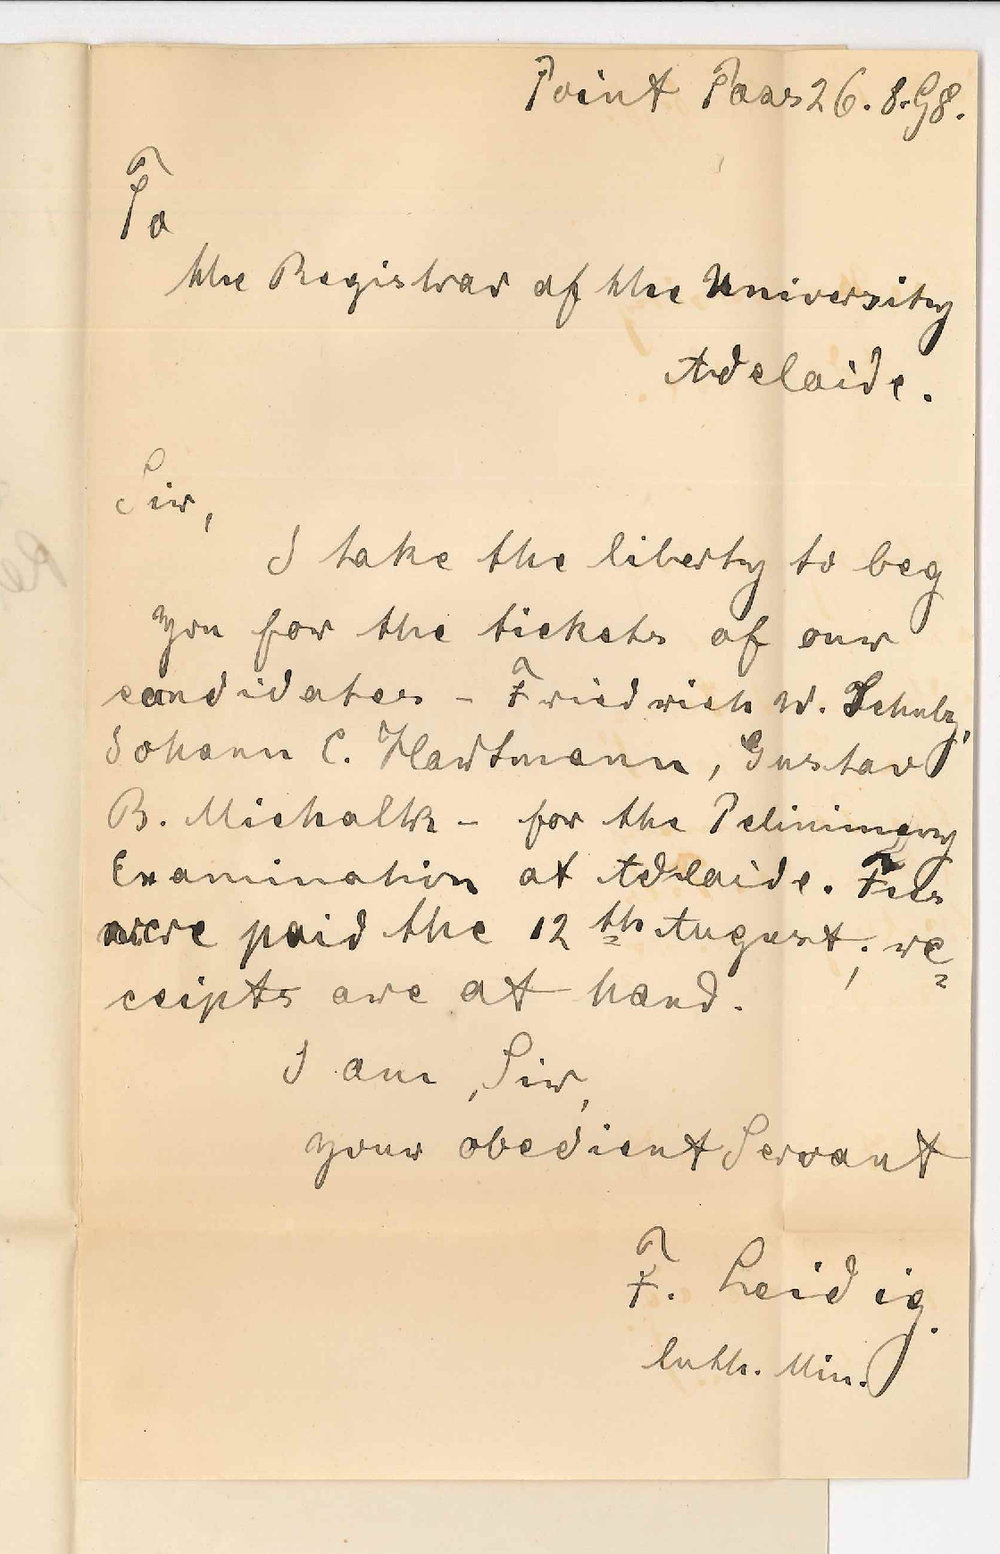 Point Pass 26.8.98.
To
the Registrar of the University
Adelaide.
Sir,
I take the liberty to beg
you for the tickets of our
candidates – Friedrich W. Schulz,
Johann C. Hartmann, Gustav
B. Michalk – for the Pelinimery
Examination at Adelaide. Fees
were paid the 12th August; re=
ceipts are at hand.
I am, Sir,
your obedient Servant
F. Leidig.
luth. Min.